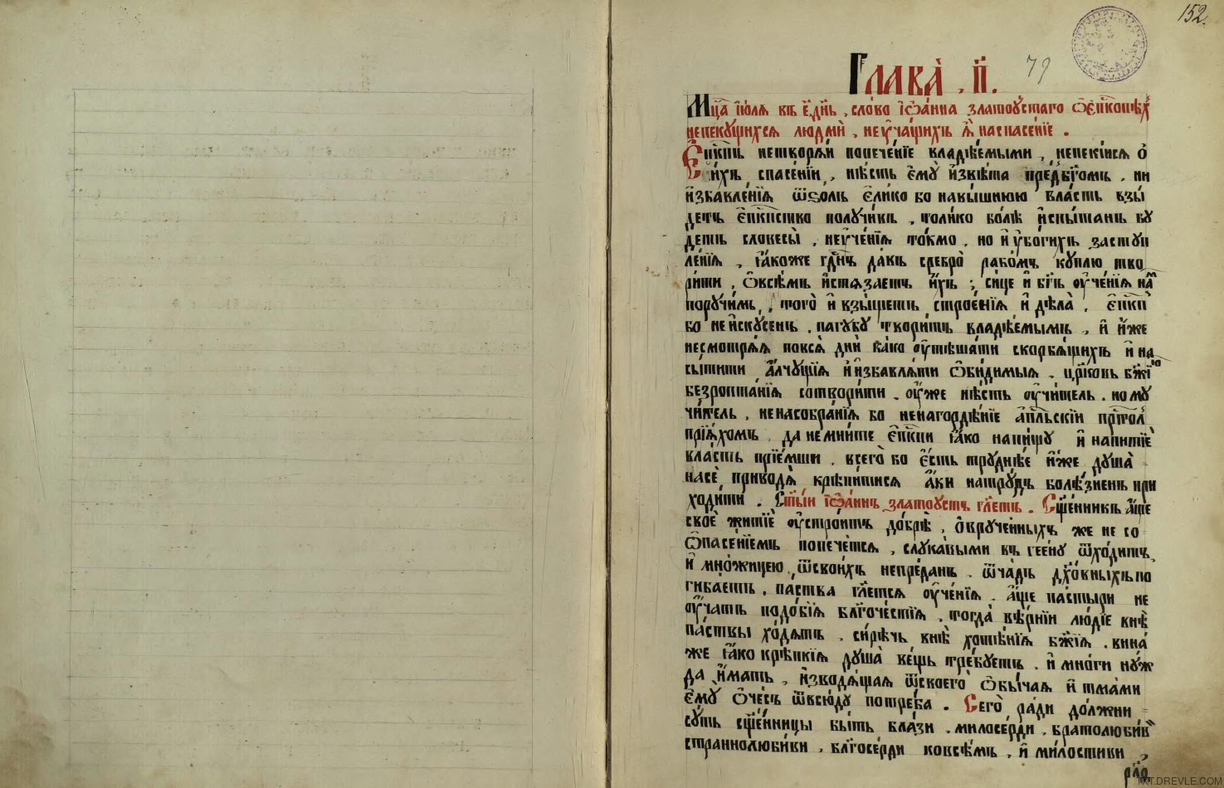 152
79
Глава̀ . и҃ .
Мц҃а їю́ля въ є҆́ді҃ . сло́во їѡа́нна златоꙋ́стаго ѡ҆є҆пкⷭ҇опѣⷯ
непекꙋ́щихся людмѝ , неꙋ҆ча́щихъ ꙗ҆̀ наспасе́нїе .
Є҆пкⷭ҇пъ нетворѧ́й попече́нїе владѣ́емыми , непекі́йся ѡ҆
и́хъ спасе́нїи , нѣ́сть є҆мꙋ̀ и҆звѣ́та предбг҃омъ , ни
и҆збавле́нїя ѿѕо́лъ є҆ли́ко бо навы́шнюю вла́сть взы́
детъ є҆пкⷭ҇пство полꙋчи́въ , то́лико бо́лѣ и҆спы́танъ бꙋ́
детъ словесы̀ , неꙋ҆че́нїя то́кмо . но и҆ ꙋ҆бо́гихъ застꙋп
ле́нїя , ꙗ҆́коже гдⷭ҇нъ да́въ сребро̀ рабо́мъ кꙋ́плю тво
ри́ти , ѡ҆всѣ́мъ и҆стяза́етъ и҆́хъ ; си́це и҆ бг҃ъ ꙋ҆че́нїя на́м
порꙋчи́въ , того̀ и҆ взы́щетъ , строе́нїя и҆ дѣ́ла . є҆пкⷭ҇пъ
бо неи҆скꙋ́сенъ , па́гꙋбꙋ твори́тъ владѣ́емымъ , и҆ и҆́же
несмотрѧ́я повся̀ дни̑ ка́ко ꙋ҆тѣша́ти скорбѧ́щихъ и҆ на
сы́тити а҆́лчꙋщїя и҆ и҆збавля́ти ѡ҆би́димыя . цр҃ковь бж҃їю
безропта́нїя сотвори́ти . ꙋ҆же нѣ́сть ꙋ҆чи́тель . но мꙋ
чи́тель . ненасобра́нїя бо ненагордѣ́нїе а҆пⷭ҇льскїи прⷭ҇то́л
прїѧ́хомъ . да не мни́те є҆пкⷭ҇пи ꙗ҆́ко напи́щꙋ и҆ напитїѐ
вла́сть прїе́мши . всего́ бо є҆́сть трꙋ́днѣе и҆́же дꙋ́ша
насѐ приводѧ̀ крѣпи́тися а҆́ки натрꙋ́дъ болѣ́зненъ при
ходи́ти . Ст҃ы́и їѡа́ннъ златоꙋ́стъ гл҃етъ . Сщ҃е́нникъ а҆́ще
своѐ житїѐ ꙋ҆стро́итъ до́брѣ , ѡ҆врꙋче́нныхъ же не со
ѡ҆пасе́нїемъ попече́тся , слꙋка́выми въ гее́нꙋ ѿхо́дитъ
и҆ мно́жицею ѿсвои́хъ непре́данъ . ѿча́дъ дх҃о́вныхъ по
гиба́етъ . па́ства гл҃ется ꙋ҆че́нїя . а҆́ще па́стыри не
ꙋ҆ча́тъ подо́бїя бл҃гоче́стїя . тогда̀ вѣ́рнїи лю́дїе кнѣ
па́ствы хо́дятъ . си́рѣчь кнѣ̀ хотѣ́нїя бж҃їя . вина́
же ꙗ҆́ко крѣ́пкїя дꙋша̀ ве́щь тре́бꙋетъ . и҆ мно́ги нꙋ́ж
да и҆́мать , и҆зводѧ́щая ѿсвоего̀ ѡ҆бы́чая и҆ тма́ми
є҆мꙋ̀ ѻ҆че́съ ѿвсю́дꙋ потре́ба . Сего̀ ра́ди до́лжни
сꙋ́ть сщ҃е́нницы бы́ть бла́зи . милосе́рди . братолю́бив
страннолю́биви . бл҃госе́рди ковсѣ́мъ , и҆ ми́лостиви ,
DREVLE.COM